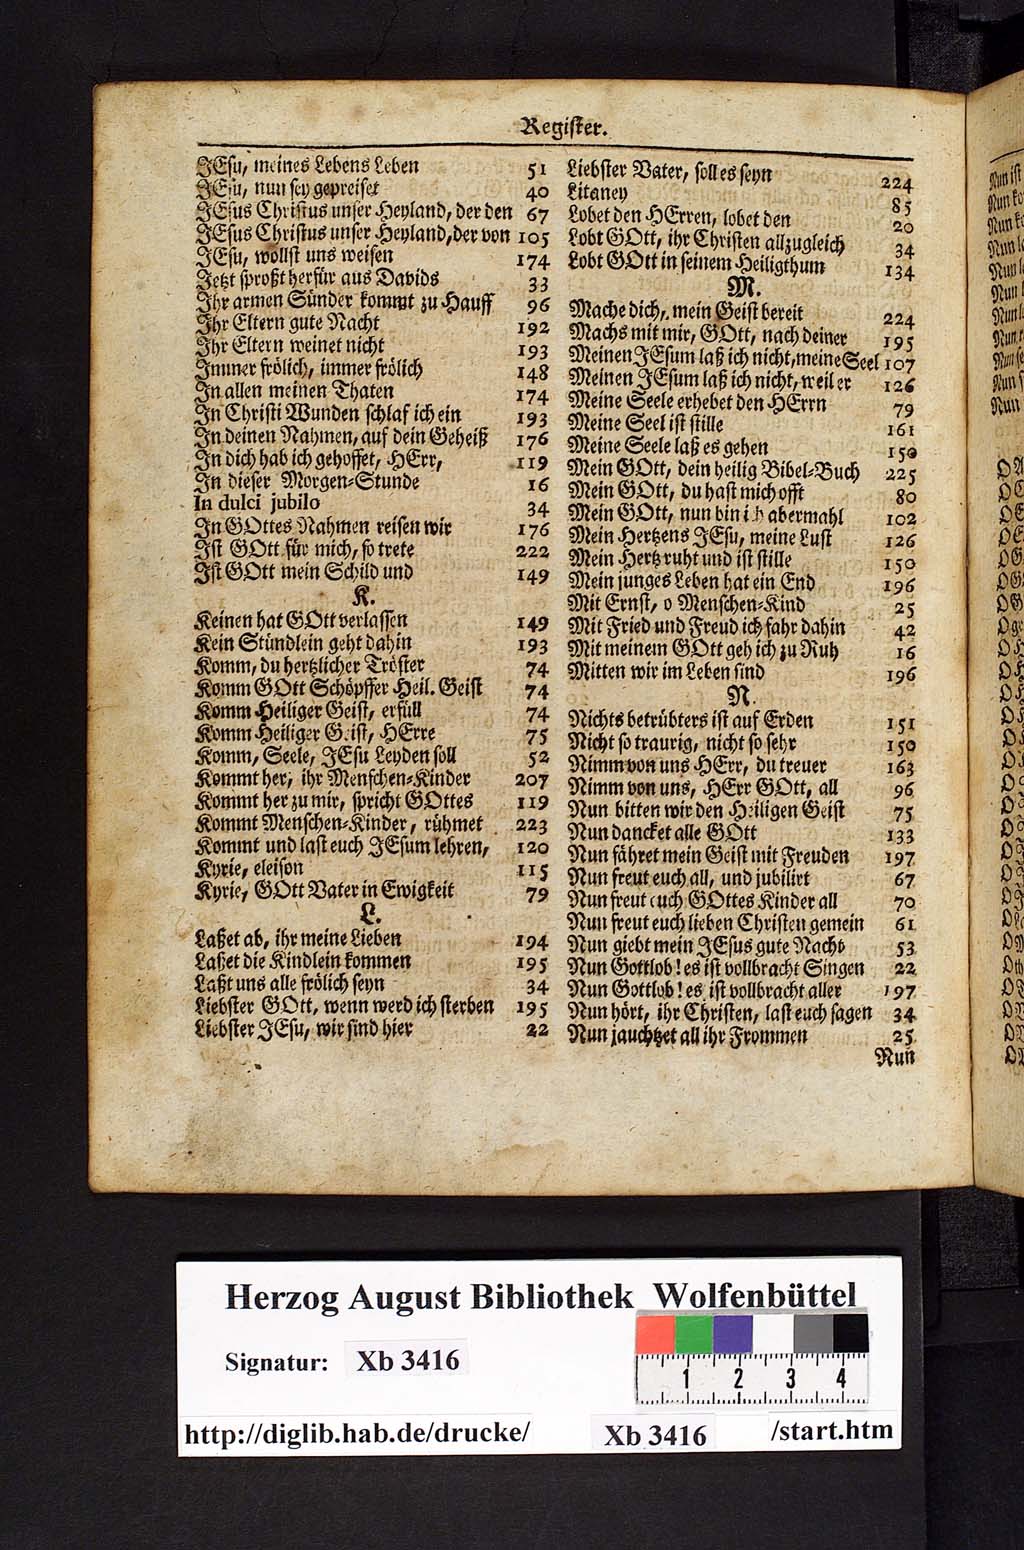 Register.
JEsu, meines Lebens Leben 51
JEsu, nun sey gepreiset 40
JEsus Christus unser Heyland, der den 67
JEsus Christus unser Heyland, der von 105
JEsu, wollst uns weisen 174
Jetzt sproßt herfür aus Davids 33
Ihr armen Sünder kommt zu Hauff 96
Ihr Eltern gute Nacht 192
Ihr Eltern weinet nicht 193
Immer frölich, immer frölich 148
In allen meinen Thaten 174
In Christi Wunden schlaf ich ein 193
In deinen Nahmen, auf dein Geheiß 176
In dich hab ich gehoffet, HErr, 119
In dieser Morgen-Stunde 16
In dulci jubilo 34
In GOttes Nahmen reisen wir 176
Ist GOtt für mich, so trete 222
Ist GOtt mein Schild und 149
K.
Keinen hat GOtt verlassen 149
Kein Stündlein geht dahin 193
Komm, du hertzlicher Tröster 74
Komm GOtt Schöpffer Heil. Geist 74
Komm Heiliger Geist, erfüll 74
Komm Heiliger Geist, HErre 75
Komm, Seele, JEsu Leyden soll 52
Kommt her, ihr Menschen-Kinder 207
Kommt her zu mir, spricht GOttes 119
Kommt Menschen-Kinder, rühmet 223
Kommt und last euch JEsum lehren, 120
Kyrie, eleison 115
Kyrie, GOtt Vater in Ewigkeit 79
L.
Laßet ab, ihr meine Lieben 194
Laßet die Kindlein kommen 195
Laßt uns alle frölich seyn 34
Liebster GOtt, wenn werd ich sterben 195
Liebster JEsu, wir sind hier 22
Liebster Vater, soll es seyn 224
Litaney 85
Lobet den HErren, lobet den 20
Lobt GOtt, ihr Christen allzugleich 34
Lobt GOtt in seinem Heiligthum 134
M.
Mache dich, mein Geist bereit 224
Machs mit mir, GOtt, nach deiner 195
Meinen JEsum laß ich nicht, meine Seel 107
Meinen JEsum laß ich nicht, weil er 126
Meine Seele erhebet den HErrn 79
Meine Seel ist stille 161
Meine Seele laß es gehen 150
Mein GOtt, dein heilig Bibel-Buch 225
Mein GOtt, du hast mich offt 80
Mein GOtt, nun bin ich abermahl 102
Mein Hertzens JEsu, meine Lust 126
Mein Hertz ruht und ist stille 150
Mein junges Leben hat ein End 196
Mit Ernst, o Menschen-Kind 25
Mit Fried und Freud ich fahr dahin 42
Mit meinem GOtt geh ich zu Ruh 16
Mitten wir im Leben sind 196
N.
Nichts betrübters ist auf Erden 151
Nicht so traurig, nicht so sehr 150
Nimm von uns HErr, du treuer 163
Nimm von uns, HErr GOtt, all 96
Nun bitten wir den Heiligen Geist 75
Nun dancket alle GOtt 133
Nun fähret mein Geist mit Freuden 197
Nun freut euch all, und jubilirt 67
Nun freut euch GOttes Kinder all 70
Nun freut euch lieben Christen gemein 61
Nun giebt mein JEsus gute Nacht 53
Nun Gottlob! es ist vollbracht Singen 22
Nun Gottlob! es ist vollbracht aller 197
Nun hört, ihr Christen, last euch sagen 34
Nun jauchtzet all ihr Frommen 25
Nun
Herzog August Bibliothek Wolfenbüttel
Signatur: Xb 3416
1 2 3 4
http://diglib.hab.de/drucke/ Xb 3416 /start.htm